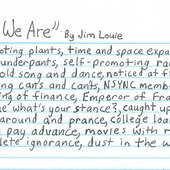 We Are" By Jim Louie
oting plants, time and space expa
underpants, self-promoting ra
old song and dance, noticed at f
ng can's and cants, NSYNC membe
ng of finance, Emperor of Fra
e what's your stance?, caught up
around and prance, college loa
pay advance, movies with r
lete ignorance, dust in the w